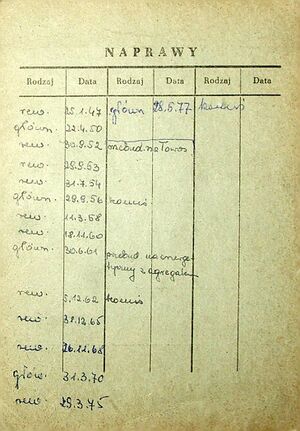 NAPRAWY
Rodzaj Data Rodzaj Data Rodzaj Data
rew. 25.1.47 główn 28.6.77
główn. 22.4.50
rew. 30.9.52 przebud. na Towos
rew. 29.9.53
rew. 31.7.54
główn. 29.9.56
rew. 11.3.58
rew. 18.11.60
główn. 30.6.61 przebud na energe-
tyczny z agregatem
rew. 5.12.62
rew. 31.12.65
rew. 26.11.68
główn. 31.3.70
rew. 29.3.75